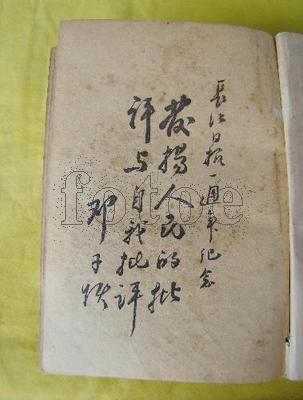 長江日报一週年纪念
發揚人民的批
评与自我批评
邓子恢
fotoe